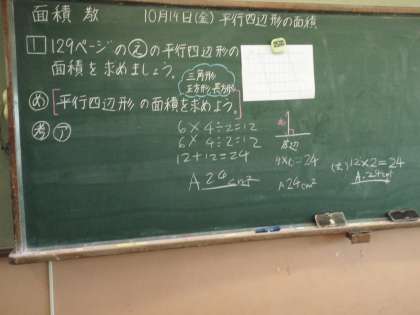 面積 数 10月14日(金) 平行四辺形の面積
1 129ページの㋓の平行四辺形の
面積を求めましょう。
三角形
正方形、長方形
め 平行四辺形の面積を求めよう。
考 ㋐
6×4÷2=12
6×4÷2=12
12+12=24
A 24cm²
底辺
4×6=24
A 24cm²
12×2=24
A. 24cm²